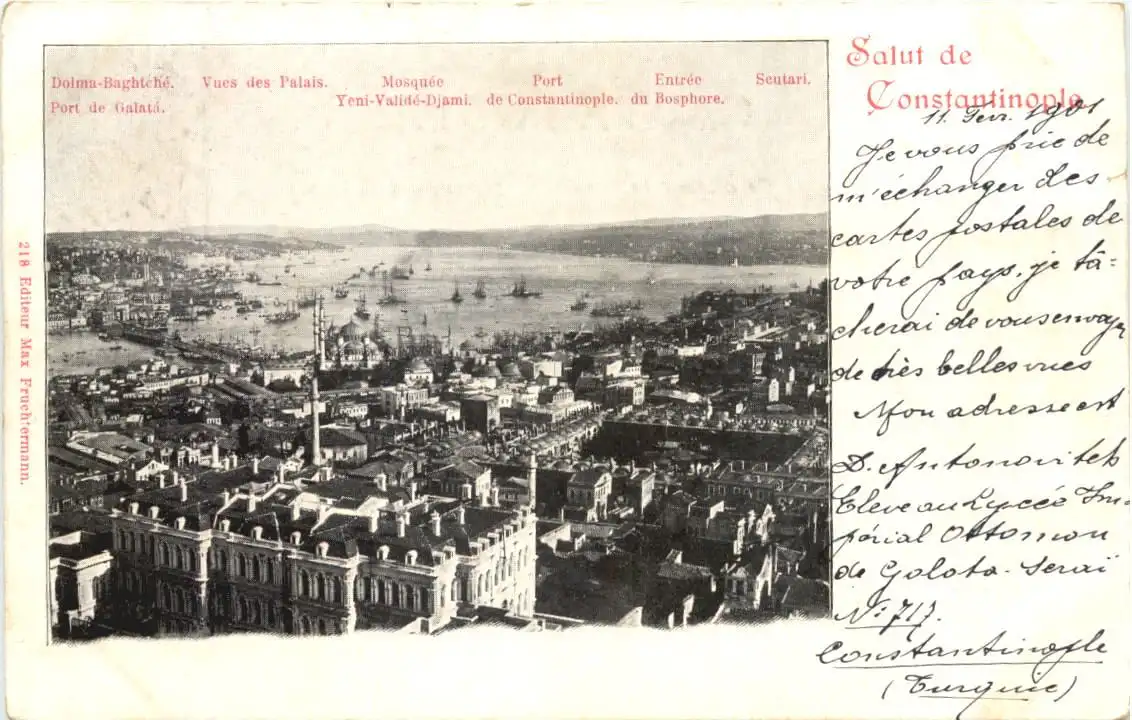 Dolma-Baghtché. Vues des Palais. Mosquée Port Entrée Scutari.
Port de Galatá. Yeni-Validé-Djami. de Constantinople. du Bosphore.
218 Editeur Max Fruchtermann.
Salut de
Constantinople
11. Févr. 1901
Je vous prie de
m'échanger des
cartes postales de
votre pays, je tâ=
cherai de vous envoyer
de très belles vues
Mon adresse est
D. Antonovitch
Elève au Lycée Im-
périal Ottoman
de Galata-Seraï
No: 717.
Constantinople
(Turquie)